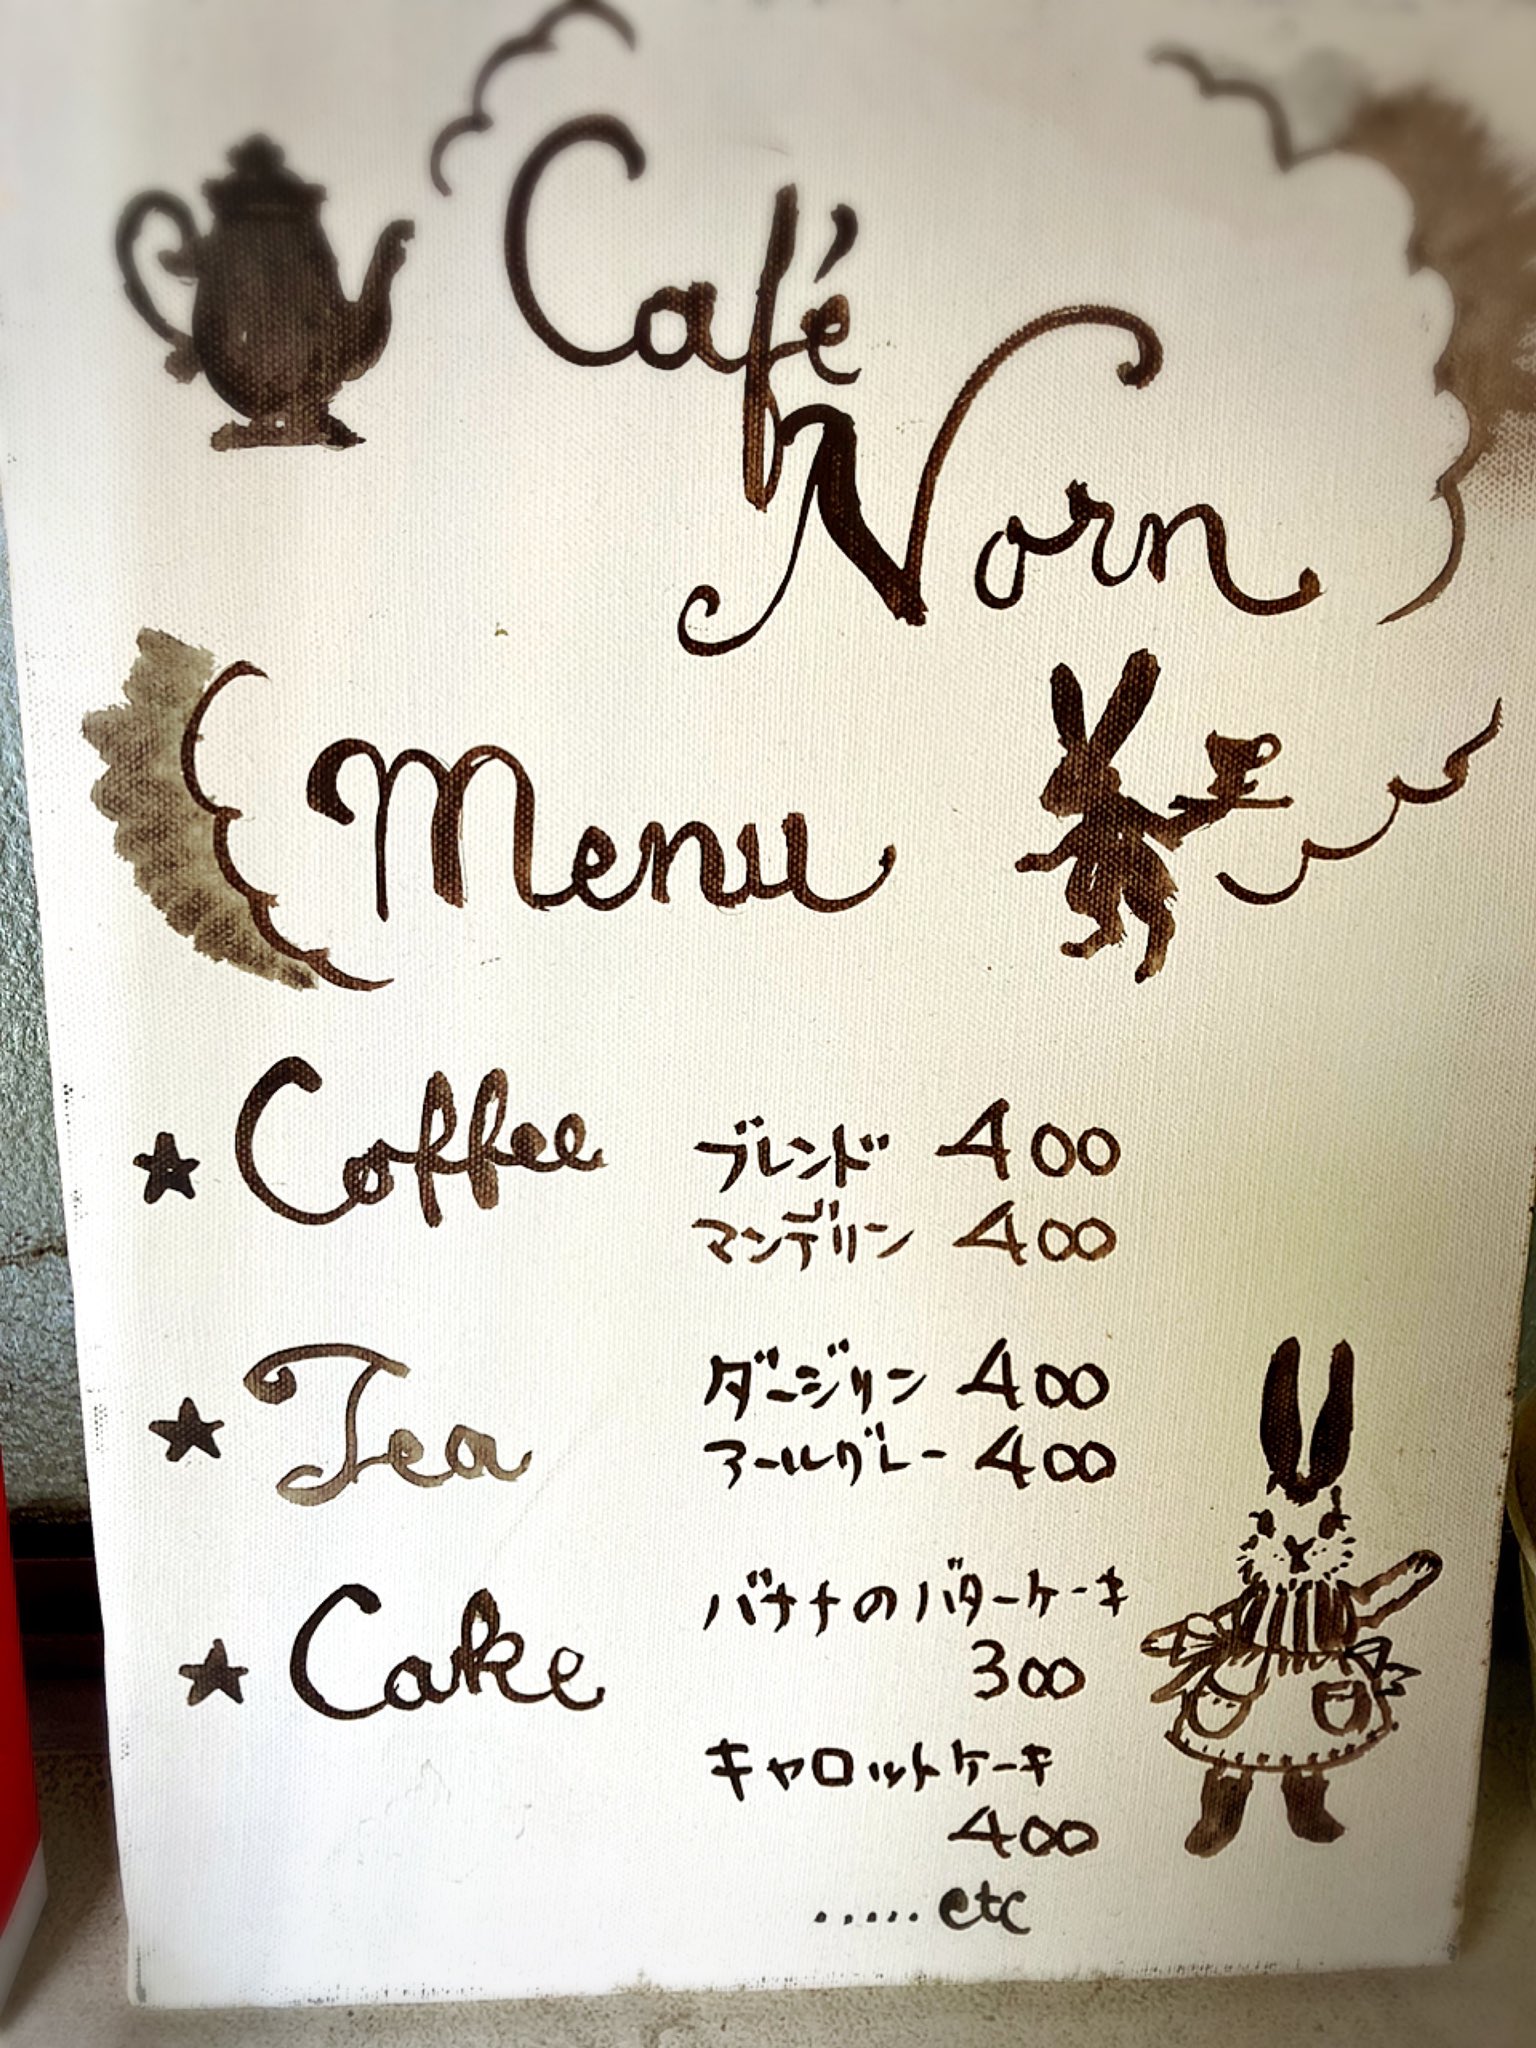 Café
Norn
Menu
★ Coffee ブレンド 400
マンデリン 400
★ Tea ダージリン 400
アールグレー 400
★ Cake バナナのバターケーキ
300
キャロットケーキ
400
.....etc